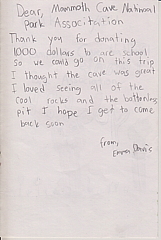 Dear, Mammoth Cave National
Park Association
Thank you for donating
1000 dollars to are school
So we could go on this trip
I thought the cave was great
I loved seeing all of the
cool rocks and the bottomless
pit I hope I get to come
back soon
From,
Emma Davis